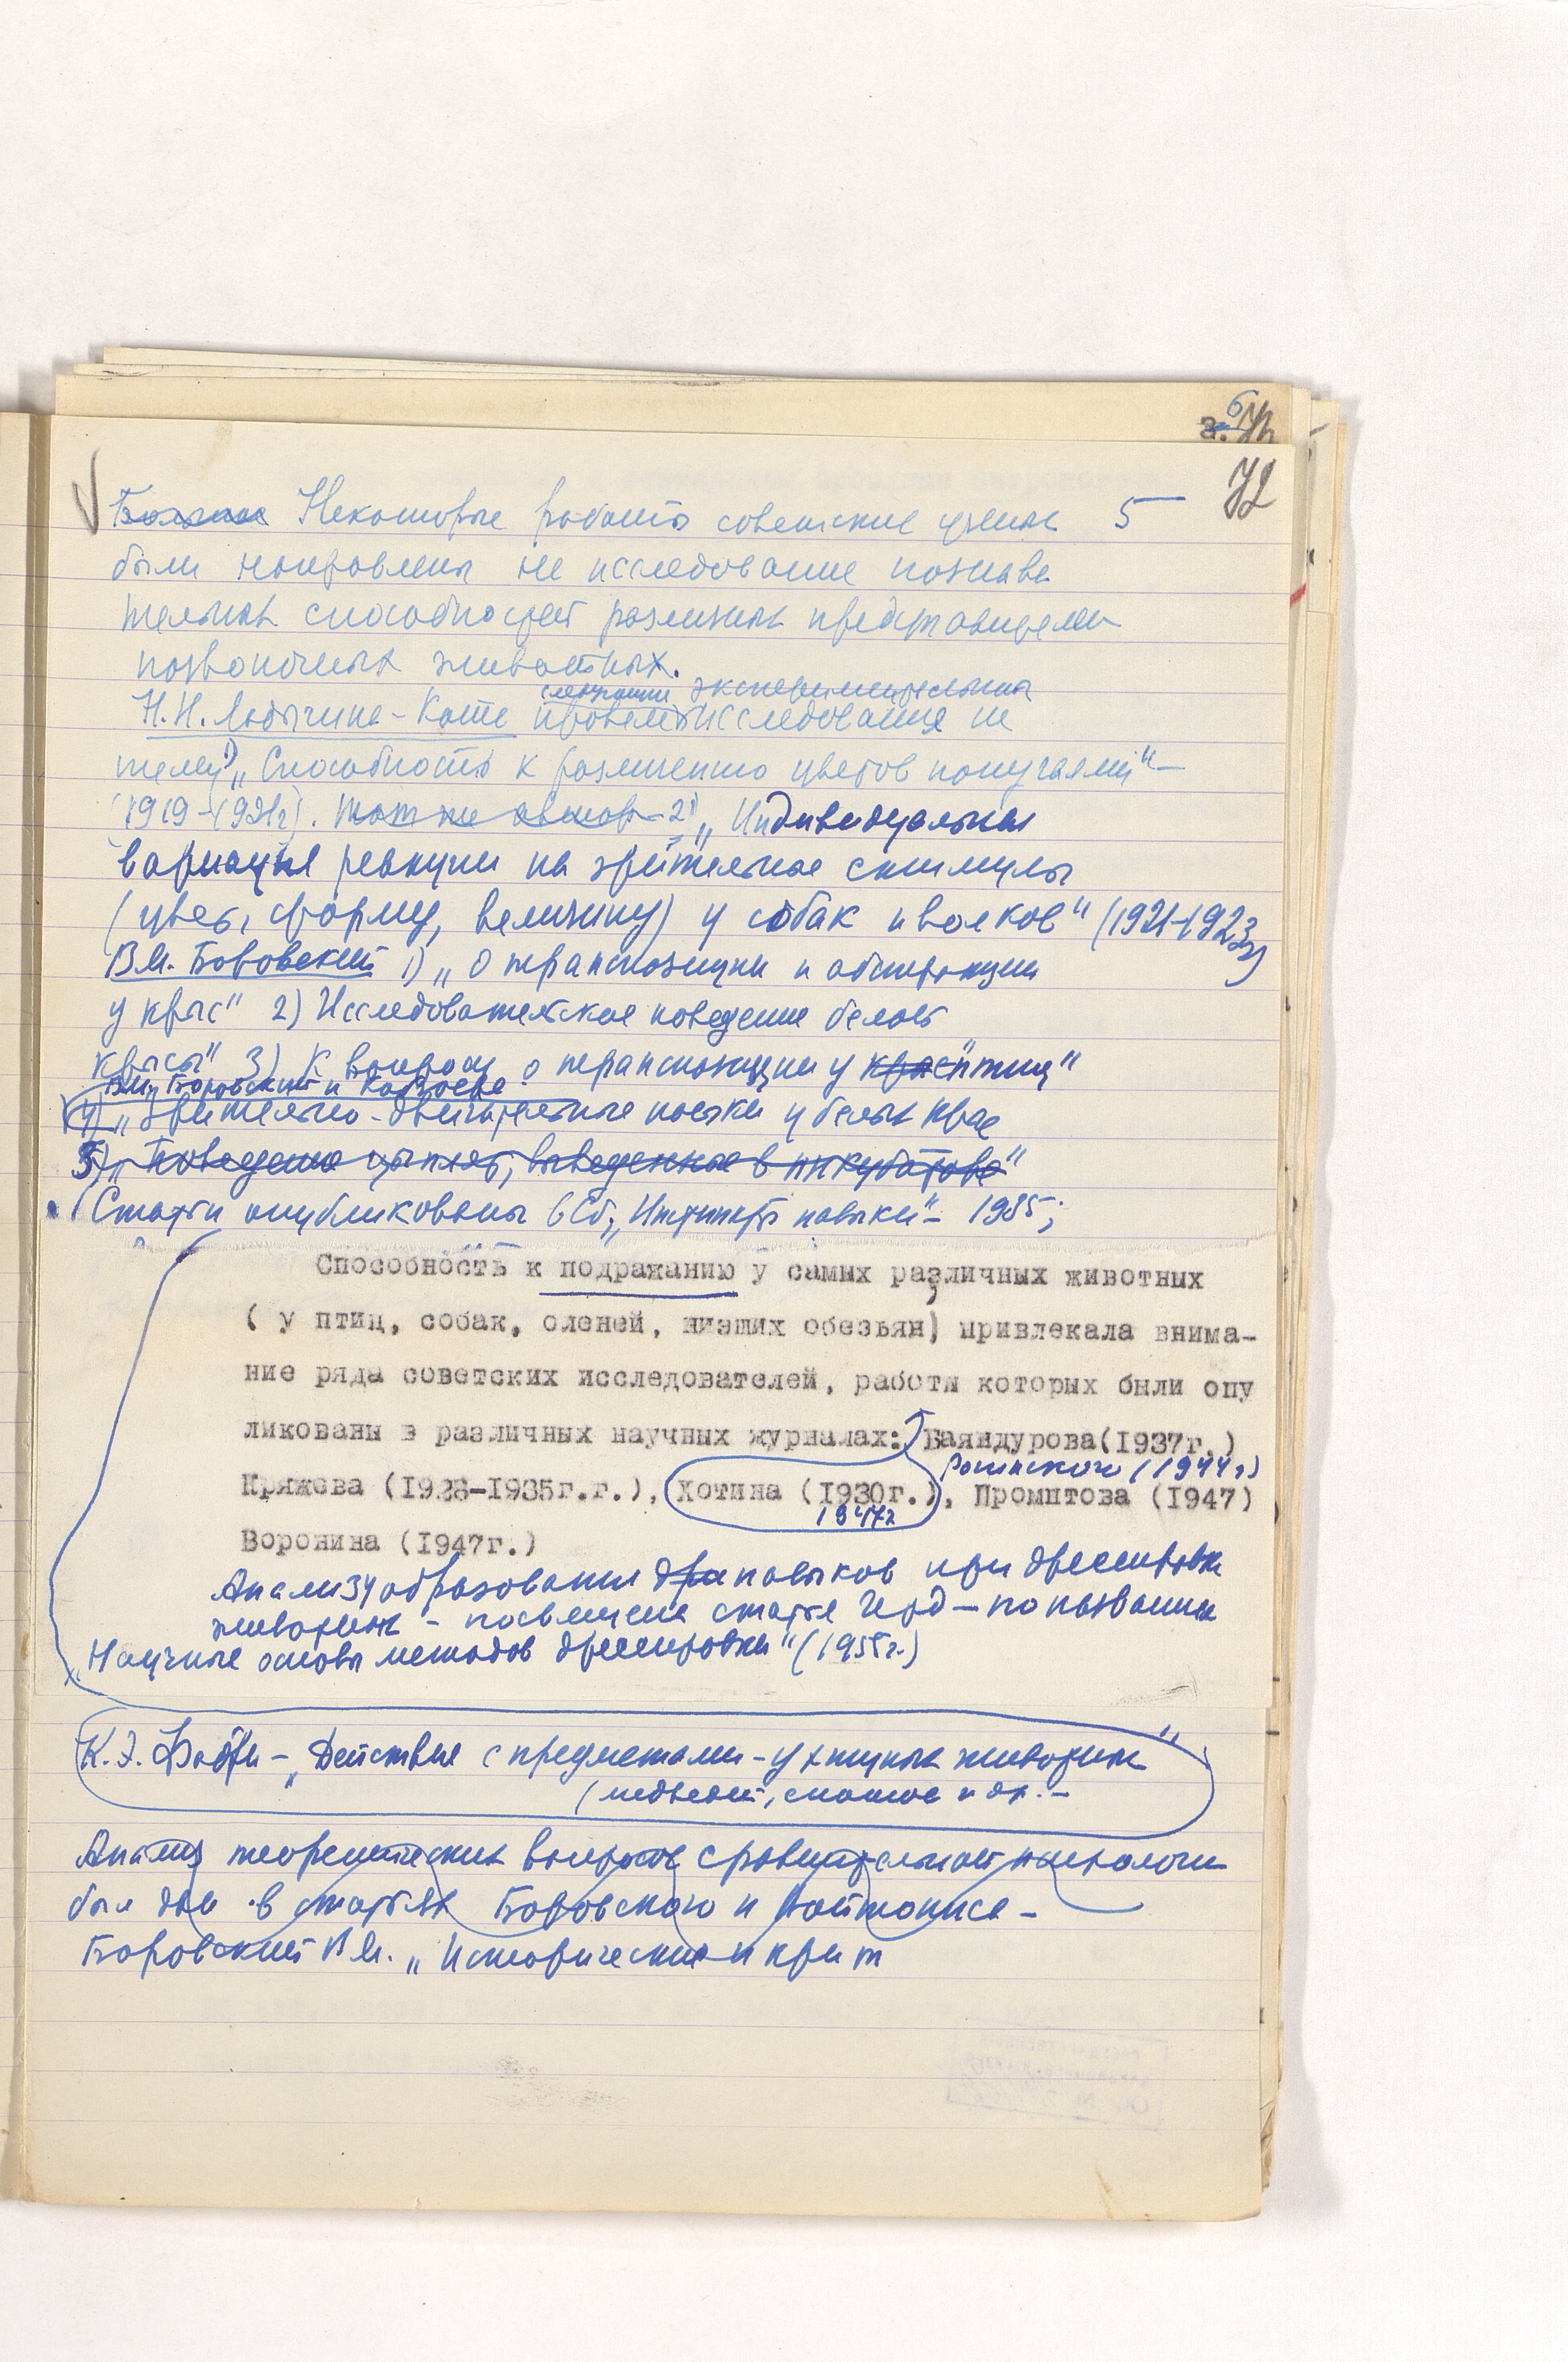 6
3.
72
Некоторые работы советских ученых 5
были направлены на исследование познава
тельных способностей различных представителей
позвоночных животных.
следующие экспериментальные
Н.Н. Ладыгина-Котс провела исследования на
тему 1) „Способность к различению цветов попугаями"—
(1919-1921г). Тот же автор - 2) „Индивидуальная
вариация реакции на зрительные стимулы
(цвет, форму, величину) у собак и волков" (1921-1923)
В.М. Боровский 1) „О транспозиции и абстракции
у крыс" 2) Исследовательское поведение белой
крысы" 3) К вопросу о транспозиции у крыс птиц"
В.М. Боровский и
4) „Зрительно-двигательные навыки у белых крыс
5) „Поведение цыплят, выведенных в инкубаторе"
(Статьи опубликованы в Сб. „Инстинкты навыки" - 1935;
Способность к подражанию у самых различных животных
( у птиц, собак, оленей, низших обезьян) привлекала внима-
ние ряда советских исследователей, работы которых были опу
ликованы в различных научных журналах: Баяндурова(1937г.)
Рогинского (1944г)
Кряжева (1928-1935г.г.), Хотина (1930г.), Промптова (1947)
1947г
Воронина (1947г.)
Анализу образования дре навыков при дрессировке
животных - посвящена статья Герд — по названием
„Научные основы методов дрессировки" (1955г.)
К.Э. Фабри - „Действия с предметами - у хищных животных"
(медведей, енотов и др. -
Анализ теоретических вопросов сравнительной психологии
был дан в статьях Боровского и Войтониса -
Боровский В.М. „Исторический и крит